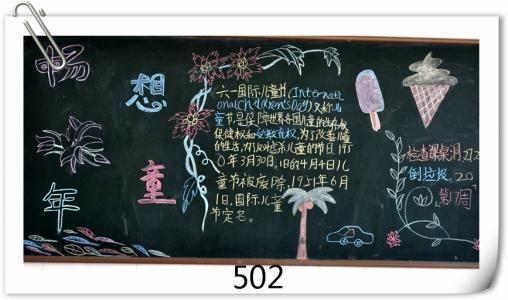 畅
想
童
年
六一国际儿童节(Internati
onalChildrensDay)又称儿
童节,是保障世界各国儿童的生存权
保健权和受教育权,为了改善儿童
的生活,为反对虐杀儿童的节日,195
0年3月30日,旧的4月4日儿
童节被废除,1951年6月
1日,国际儿童
节定名。
检查课桌洞
倒垃圾
第1周
502